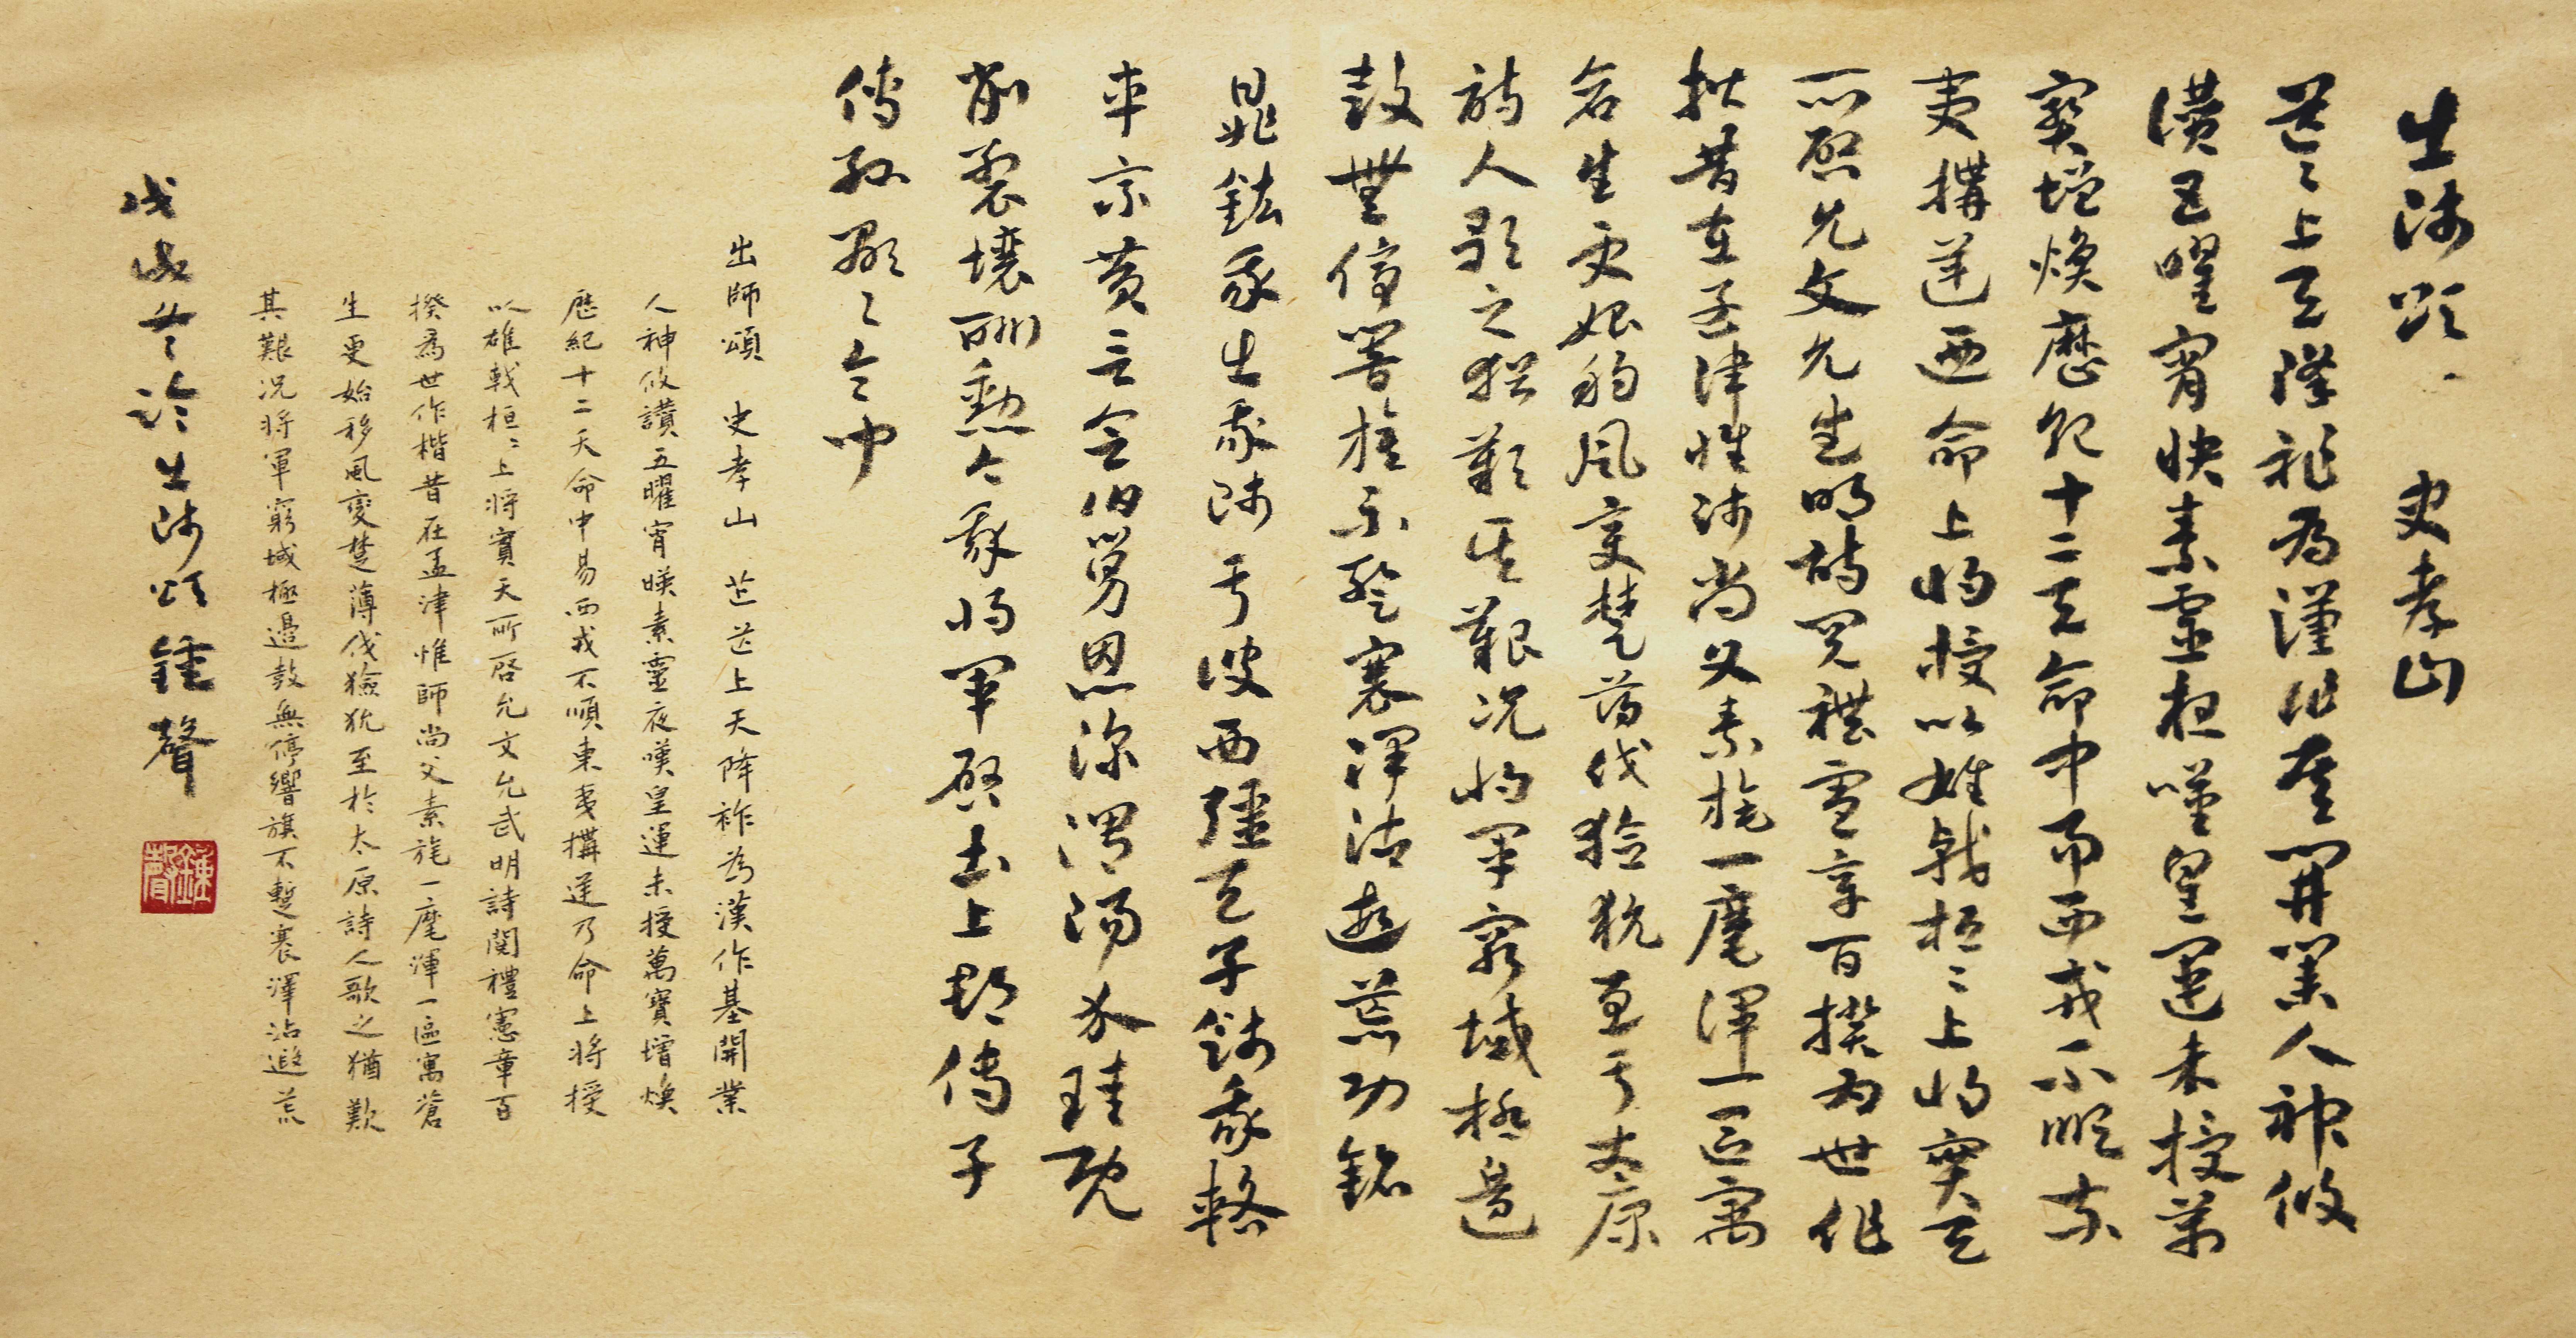 出師頌 史孝山
茫〻上天降祚為漢作基開業人神攸
讚五曜宵映素靈夜嘆皇運未授萬
寶增煥歷紀十二天命中易西戎不順東
夷構逆乃命上將授以雄戟桓〻上將寔天
所啓允文允武明詩閱禮憲章百揆為世作
楷昔在孟津惟師尚父素旄一麾渾一區寓
蒼生更始移風變楚薄伐獫狁至于太原
詩人歌之猶歎其艱況將軍窮域極邊
鼓無停響旗不蹔褰澤沾遐荒功銘
鼎鉉我出我師于彼西疆天子餞我輅
車乘黃言念伯舅恩深渭陽介珪既
削裂壤酬勳今我將軍啓土上郡傳子
傳孫顯〻令問
出師頌 史孝山 芒芒上天降祚為漢作基開業
人神攸讚五曜宵暎素靈夜嘆皇運未授萬寶增煥
歷紀十二天命中易西戎不順東夷構逆乃命上將授
以雄戟桓〻上將實天所啓允文允武明詩閱禮憲章百
揆為世作楷昔在孟津惟師尚父素旄一麾渾一區寓蒼
生更始移風變楚薄伐獫狁至於太原詩人歌之猶歎
其艱況將軍窮域極邊鼓無停響旗不蹔褰澤沾遐荒
戊戌臨出師頌鍾聲
鍾聲